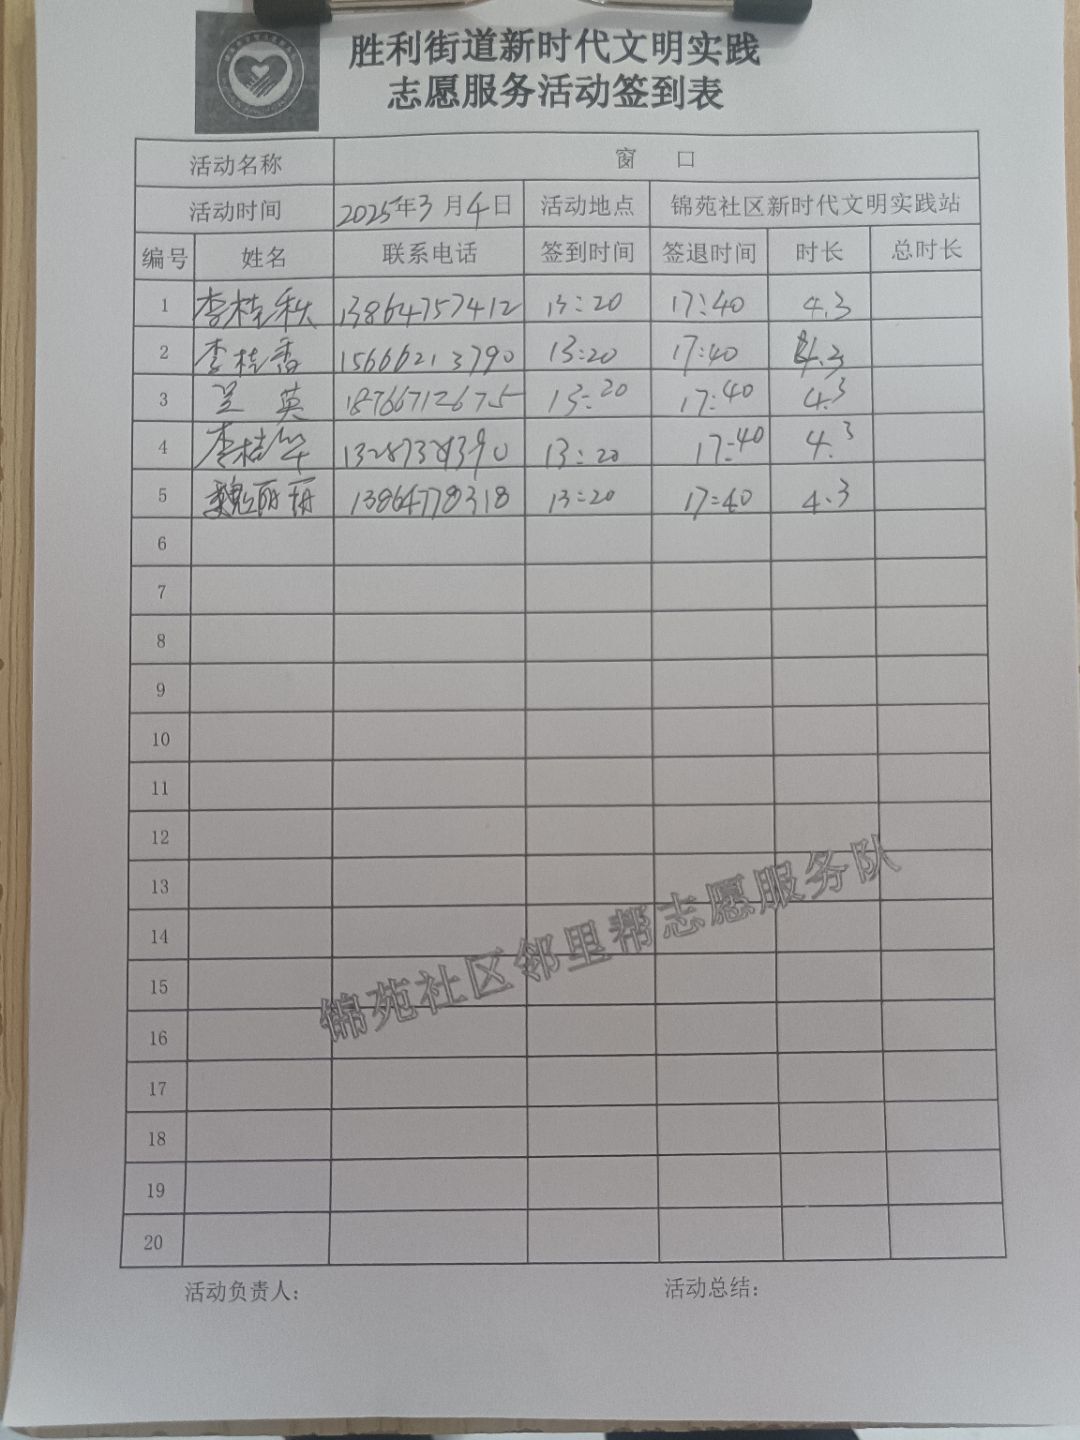 胜利街道新时代文明实践
志愿服务活动签到表
活动名称 窗 口
活动时间 2025年3月4日 活动地点 锦苑社区新时代文明实践站
编号 姓名 联系电话 签到时间 签退时间 时长 总时长
1 李桂秋 13864757412 13:20 17:40 4.3
2 李桂香 15666213790 13:20 17:40 4.3
3 英 18766712675 13:20 17:40 4.3
4 李桂华 13:20 17:40 4.3
5 魏丽丽 13864778318 13:20 17:40 4.3
6
7
8
9
10
11
12
13
14
15
16
17
18
19
20
锦苑社区邻里帮志愿服务队
活动负责人： 活动总结：